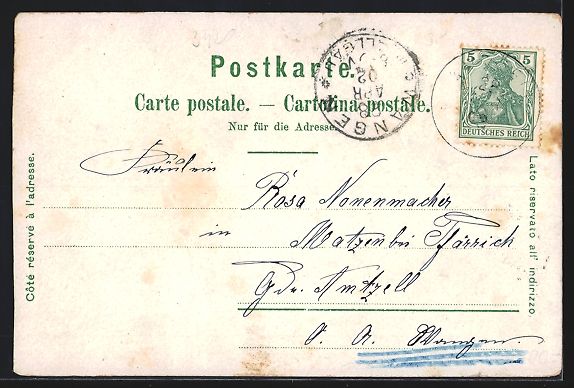 Postkarte.
Carte postale. — Cartolina postale.
Nur für die Adresse
5 5
DEUTSCHES REICH
WANGEN
APR
02
Fräulein
Rosa Nonenmacher
in
Matzen bei Pfärrich
Gde. Amtzell
O. A. Wangen.
Côté réservé à l'adresse.
Lato riservato all' indirizzo